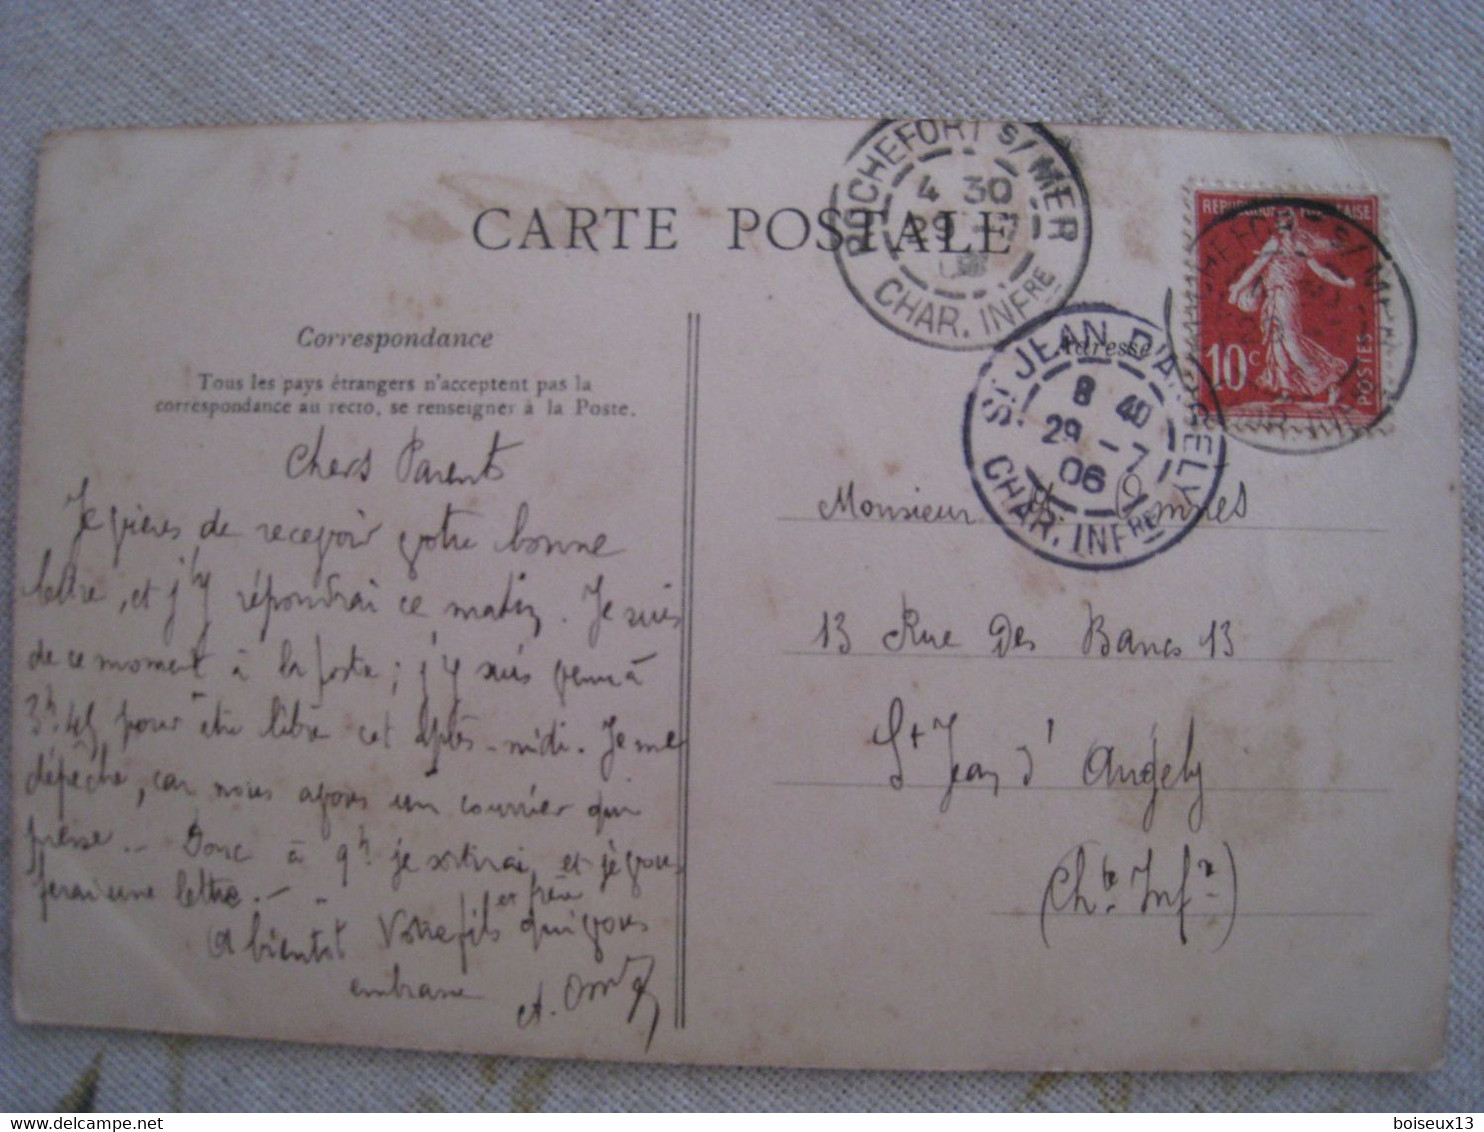 CARTE POSTALE
ROCHEFORT S/ MER
4 30
29 - 7
CHAR. INFRE
REPUBLIQUE FRANÇAISE
10c
POSTES
Correspondance
Adresse
Tous les pays étrangers n'acceptent pas la
correspondance au recto, se renseigner à la Poste.
ST JEAN D'ANGELY
8 40
29 - 7
06
CHAR. INFRE
Chers Parents
Je viens de recevoir votre bonne
lettre, et j'y répondrai ce matin. Je suis
de ce moment à la poste; j'y suis venu à
3h.45 pour être libre cet après-midi. Je me
dépêche, car nous avons un courrier qui
presse.- Donc à 9h je sortirai et je vous
ferai une lettre.-
A bientôt Votre fils et frère qui vous
embrasse
A.
Monsieur
13 Rue Des Bancs 13
St Jean d'Angély
(Chte Infre)
boiseux13